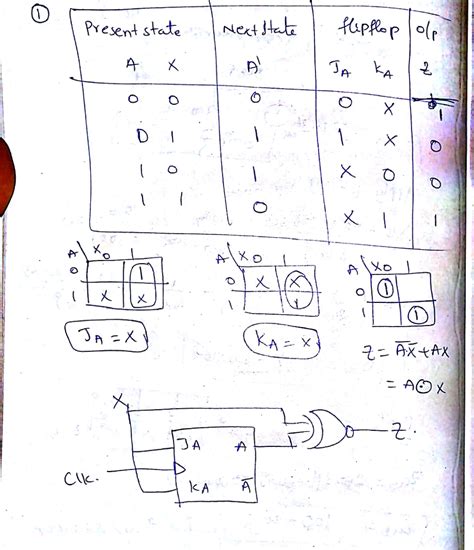 ①
Present state Next State flipflop o/p
A X A' JA KA Z
0 0 0 0 X 1
0 1 1 1 X 0
1 0 1 X 0 0
1 1 0 X 1 1
A\X 0 1
0 1
1 X X
JA = X
A\X 0 1
0 X X
1 1
KA = X
A\X 0 1
0 1
1 1
Z = A̅X̅ + AX
= A⊙X
X
JA A
Z.
Clk.
KA A̅